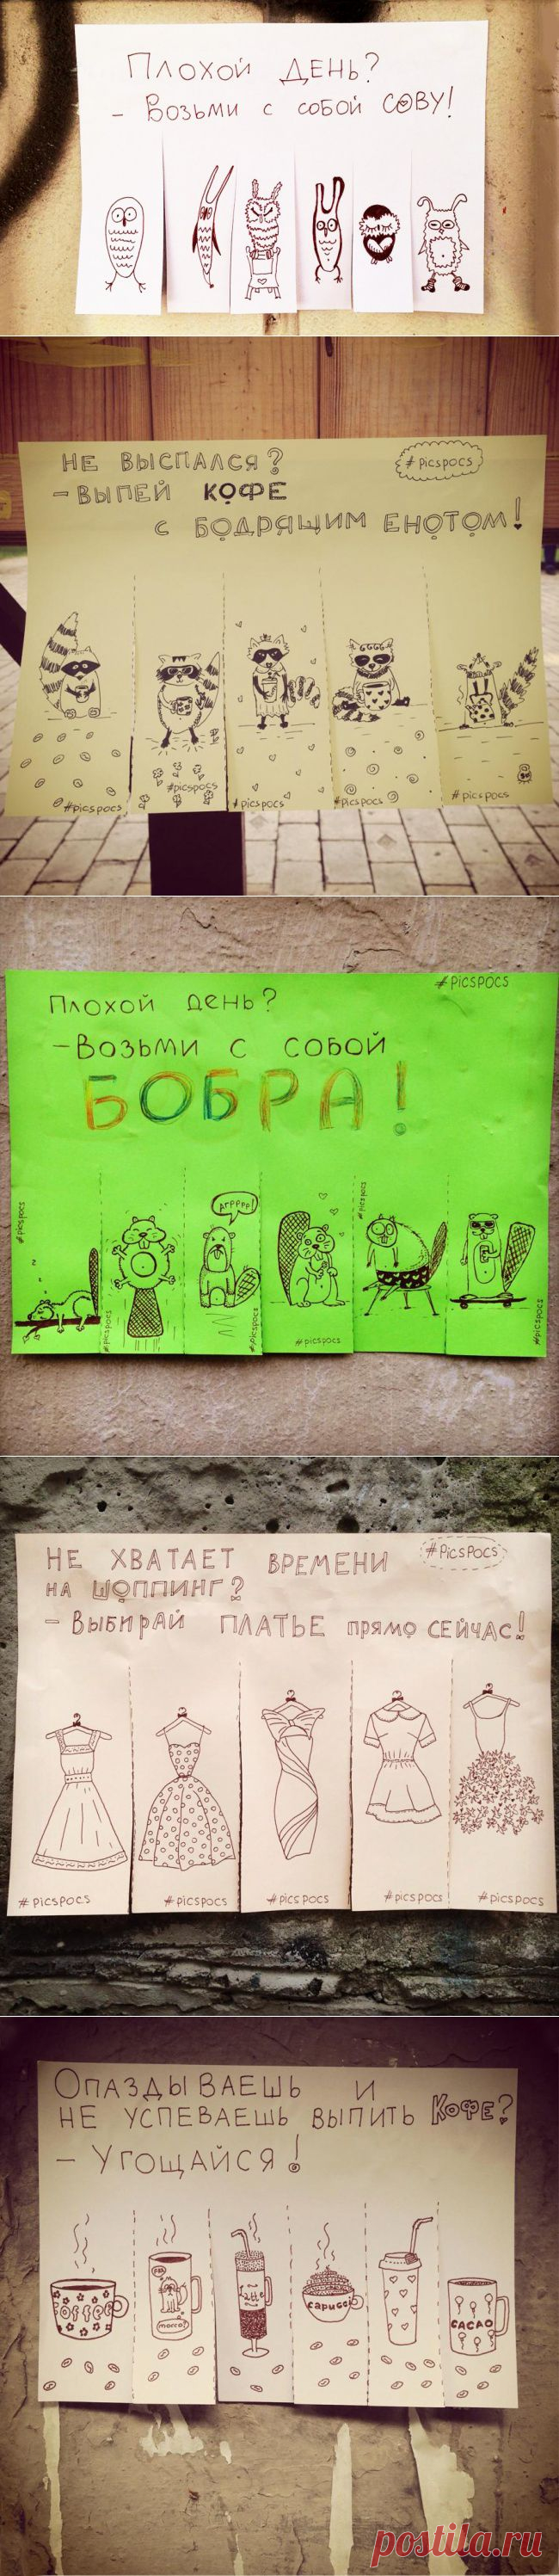 Плохой день?
- Возьми с собой СОВУ!
НЕ ВЫСПАЛСЯ?
#picspocs
- ВЫПЕЙ КОФЕ
С БОДРЯЩИМ ЕНОТОМ!
#picspocs
#picspocs
#picspocs
#picspocs
#picspocs
#PICSPOCS
Плохой день?
- Возьми с собой
БОБРА!
#picspocs
#picspocs
АГРРРР!
#picspocs
#picspocs
#picspocs
#picspocs
НЕ ХВАТАЕТ ВРЕМЕНИ
#PicsPocs
НА ШОППИНГ?
- Выбирай ПЛАТЬЕ прямо СЕЙЧАС!
#picspocs
#picspocs
#picspocs
#picspocs
#picspocs
Опаздываешь и
не успеваешь выпить Кофе?
- Угощайся!
Coffee
Latte
CACAO
postila.ru